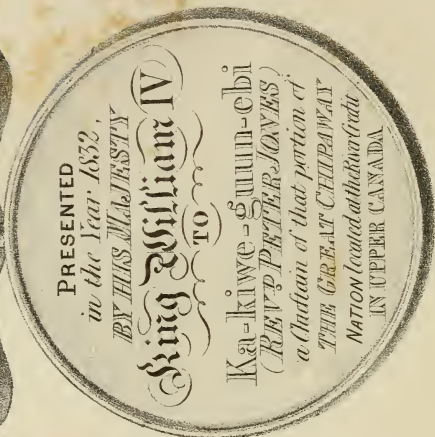 PRESENTED
in the Year 1832,
BY HIS MAJESTY
King William IV
TO
Ka-kiwe-guun-ebi
(REVD PETER JONES)
a Chieftain of that portion of
THE GREAT CHIPAWAY
NATION located at the River Credit
IN UPPER CANADA